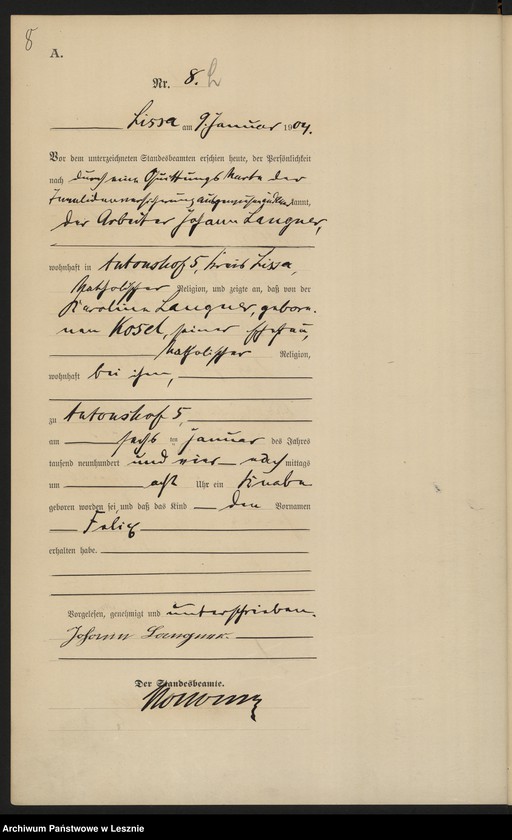 8
A.
Nr. 8.
Lissa am 9. Januar 1904.
Vor dem unterzeichneten Standesbeamten erschien heute, der Persönlichkeit
nach durch eine Quittungskarte der
Invalidenversicherung kannt,
der Arbeiter Johann Langner,
wohnhaft in Antonshof 5, Kreis Lissa,
katholischer Religion, und zeigte an, daß von der
Karolina Langner, gebore-
nen Kosel, seiner Ehefrau,
katholischer Religion,
wohnhaft bei ihm,
zu Antonshof 5,
am sechs ten Januar des Jahres
tausend neunhundert und vier nach mittags
um acht Uhr ein Knabe
geboren worden sei, und daß das Kind den Vornamen
Felix
erhalten habe.
Vorgelesen, genehmigt und unterschrieben.
Johann Langner.
Der Standesbeamte.
Archiwum Państwowe w Lesznie